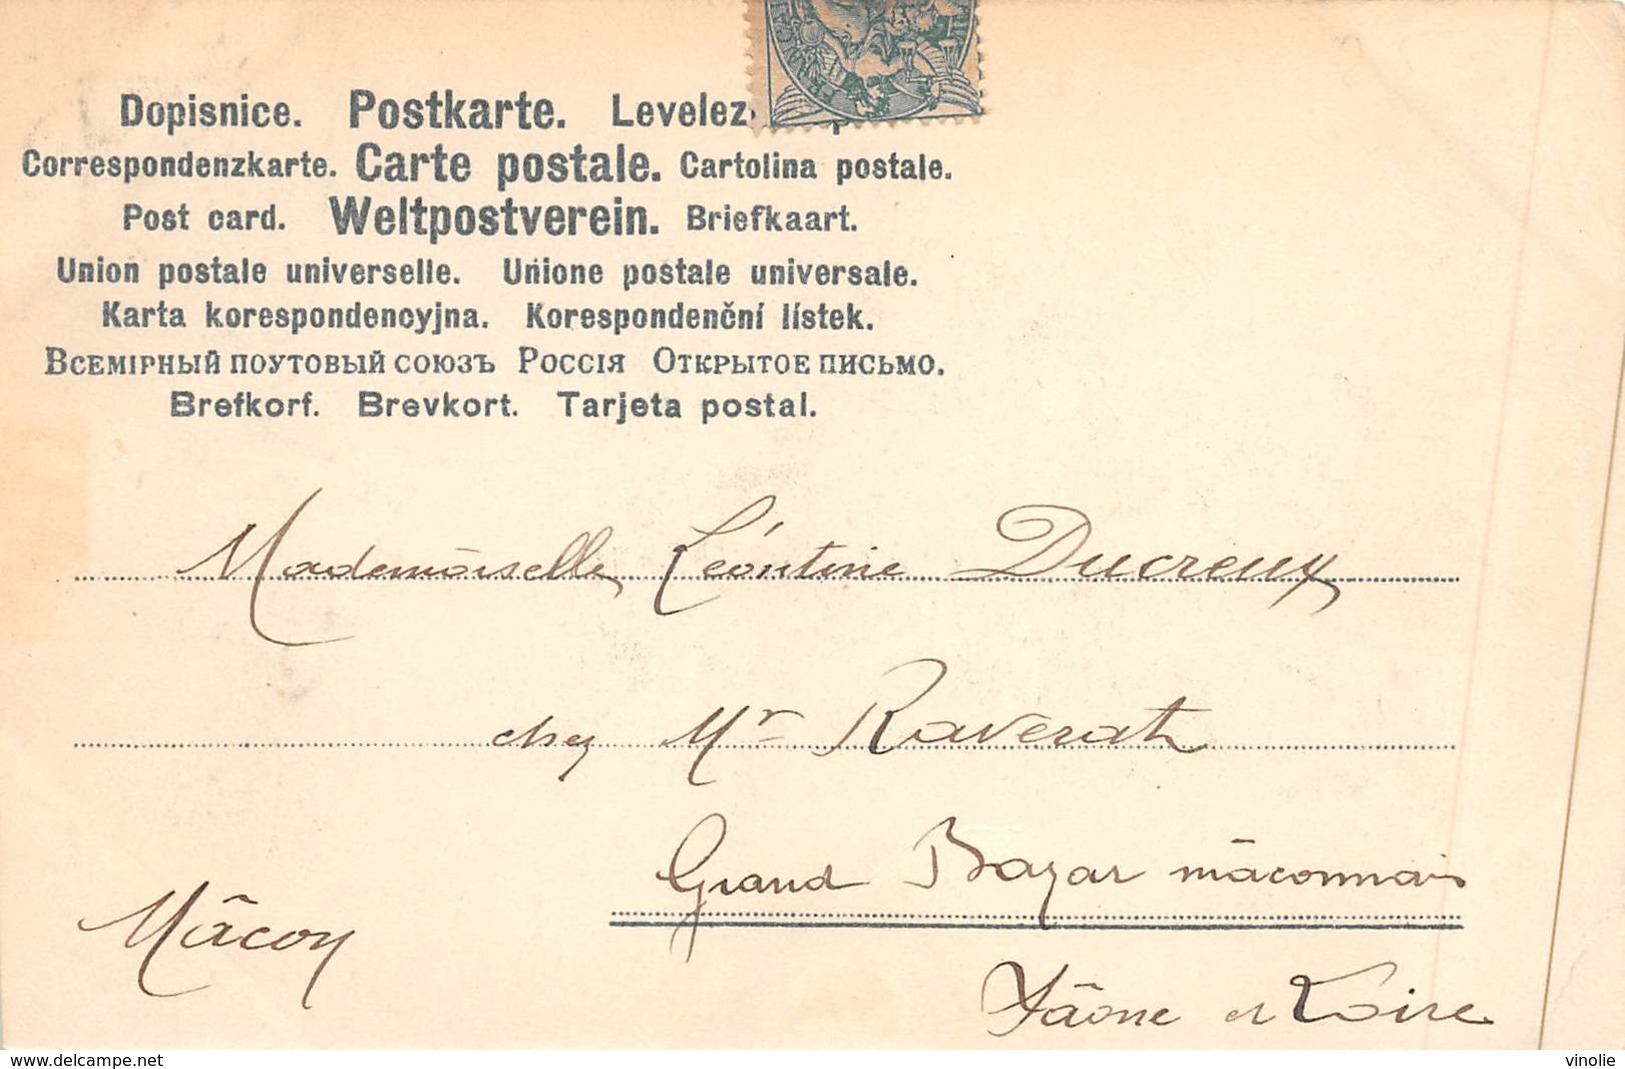 Dopisnice. Postkarte. Levelez
Correspondenzkarte. Carte postale. Cartolina postale.
Post card. Weltpostverein. Briefkaart.
Union postale universelle. Unione postale universale.
Karta korespondencyjna. Korespondenční lístek.
Всемірный поутовый союзъ Россія Открытое письмо.
Brefkorf. Brevkort. Tarjeta postal.
Mademoiselle Léontine Ducreux
chez Mr Raverat
Grand Bazar mâconnais
Mâcon
Sâone et Loire
www.delcampe.net
vinolie